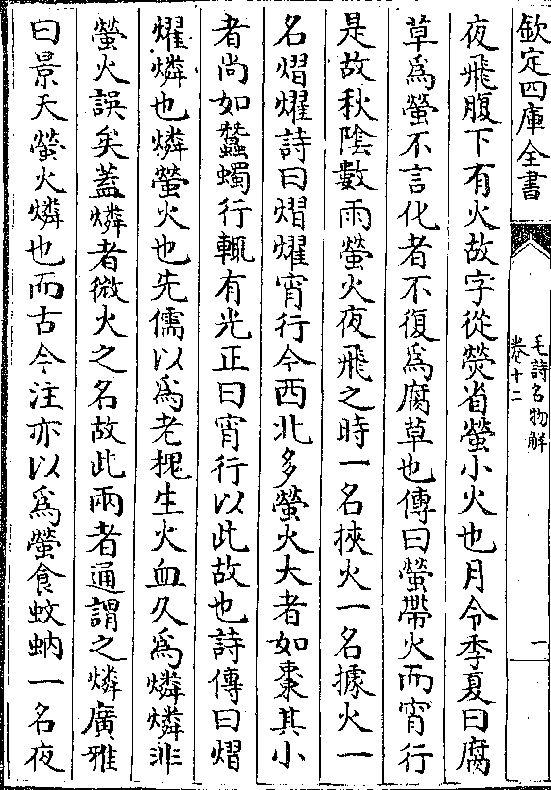 欽定四庫全書
毛詩名物解
卷十二
一
夜飛腹下有火故字從熒省螢小火也月令季夏曰腐
草為螢不言化者不復為腐草也傳曰螢帶火而宵行
是故秋陰數雨螢火夜飛之時一名挾火一名據火一
名熠燿詩曰熠燿宵行今西北多螢火大者如棗其小
者尚如蠶蠋行輒有光正曰宵行以此故也詩傳曰熠
燿燐也燐螢火也先儒以為老槐生火血久為燐燐非
螢火誤矣蓋燐者微火之名故此兩者通謂之燐廣雅
曰景天螢火燐也而古今注亦以為螢食蚊蚋一名夜